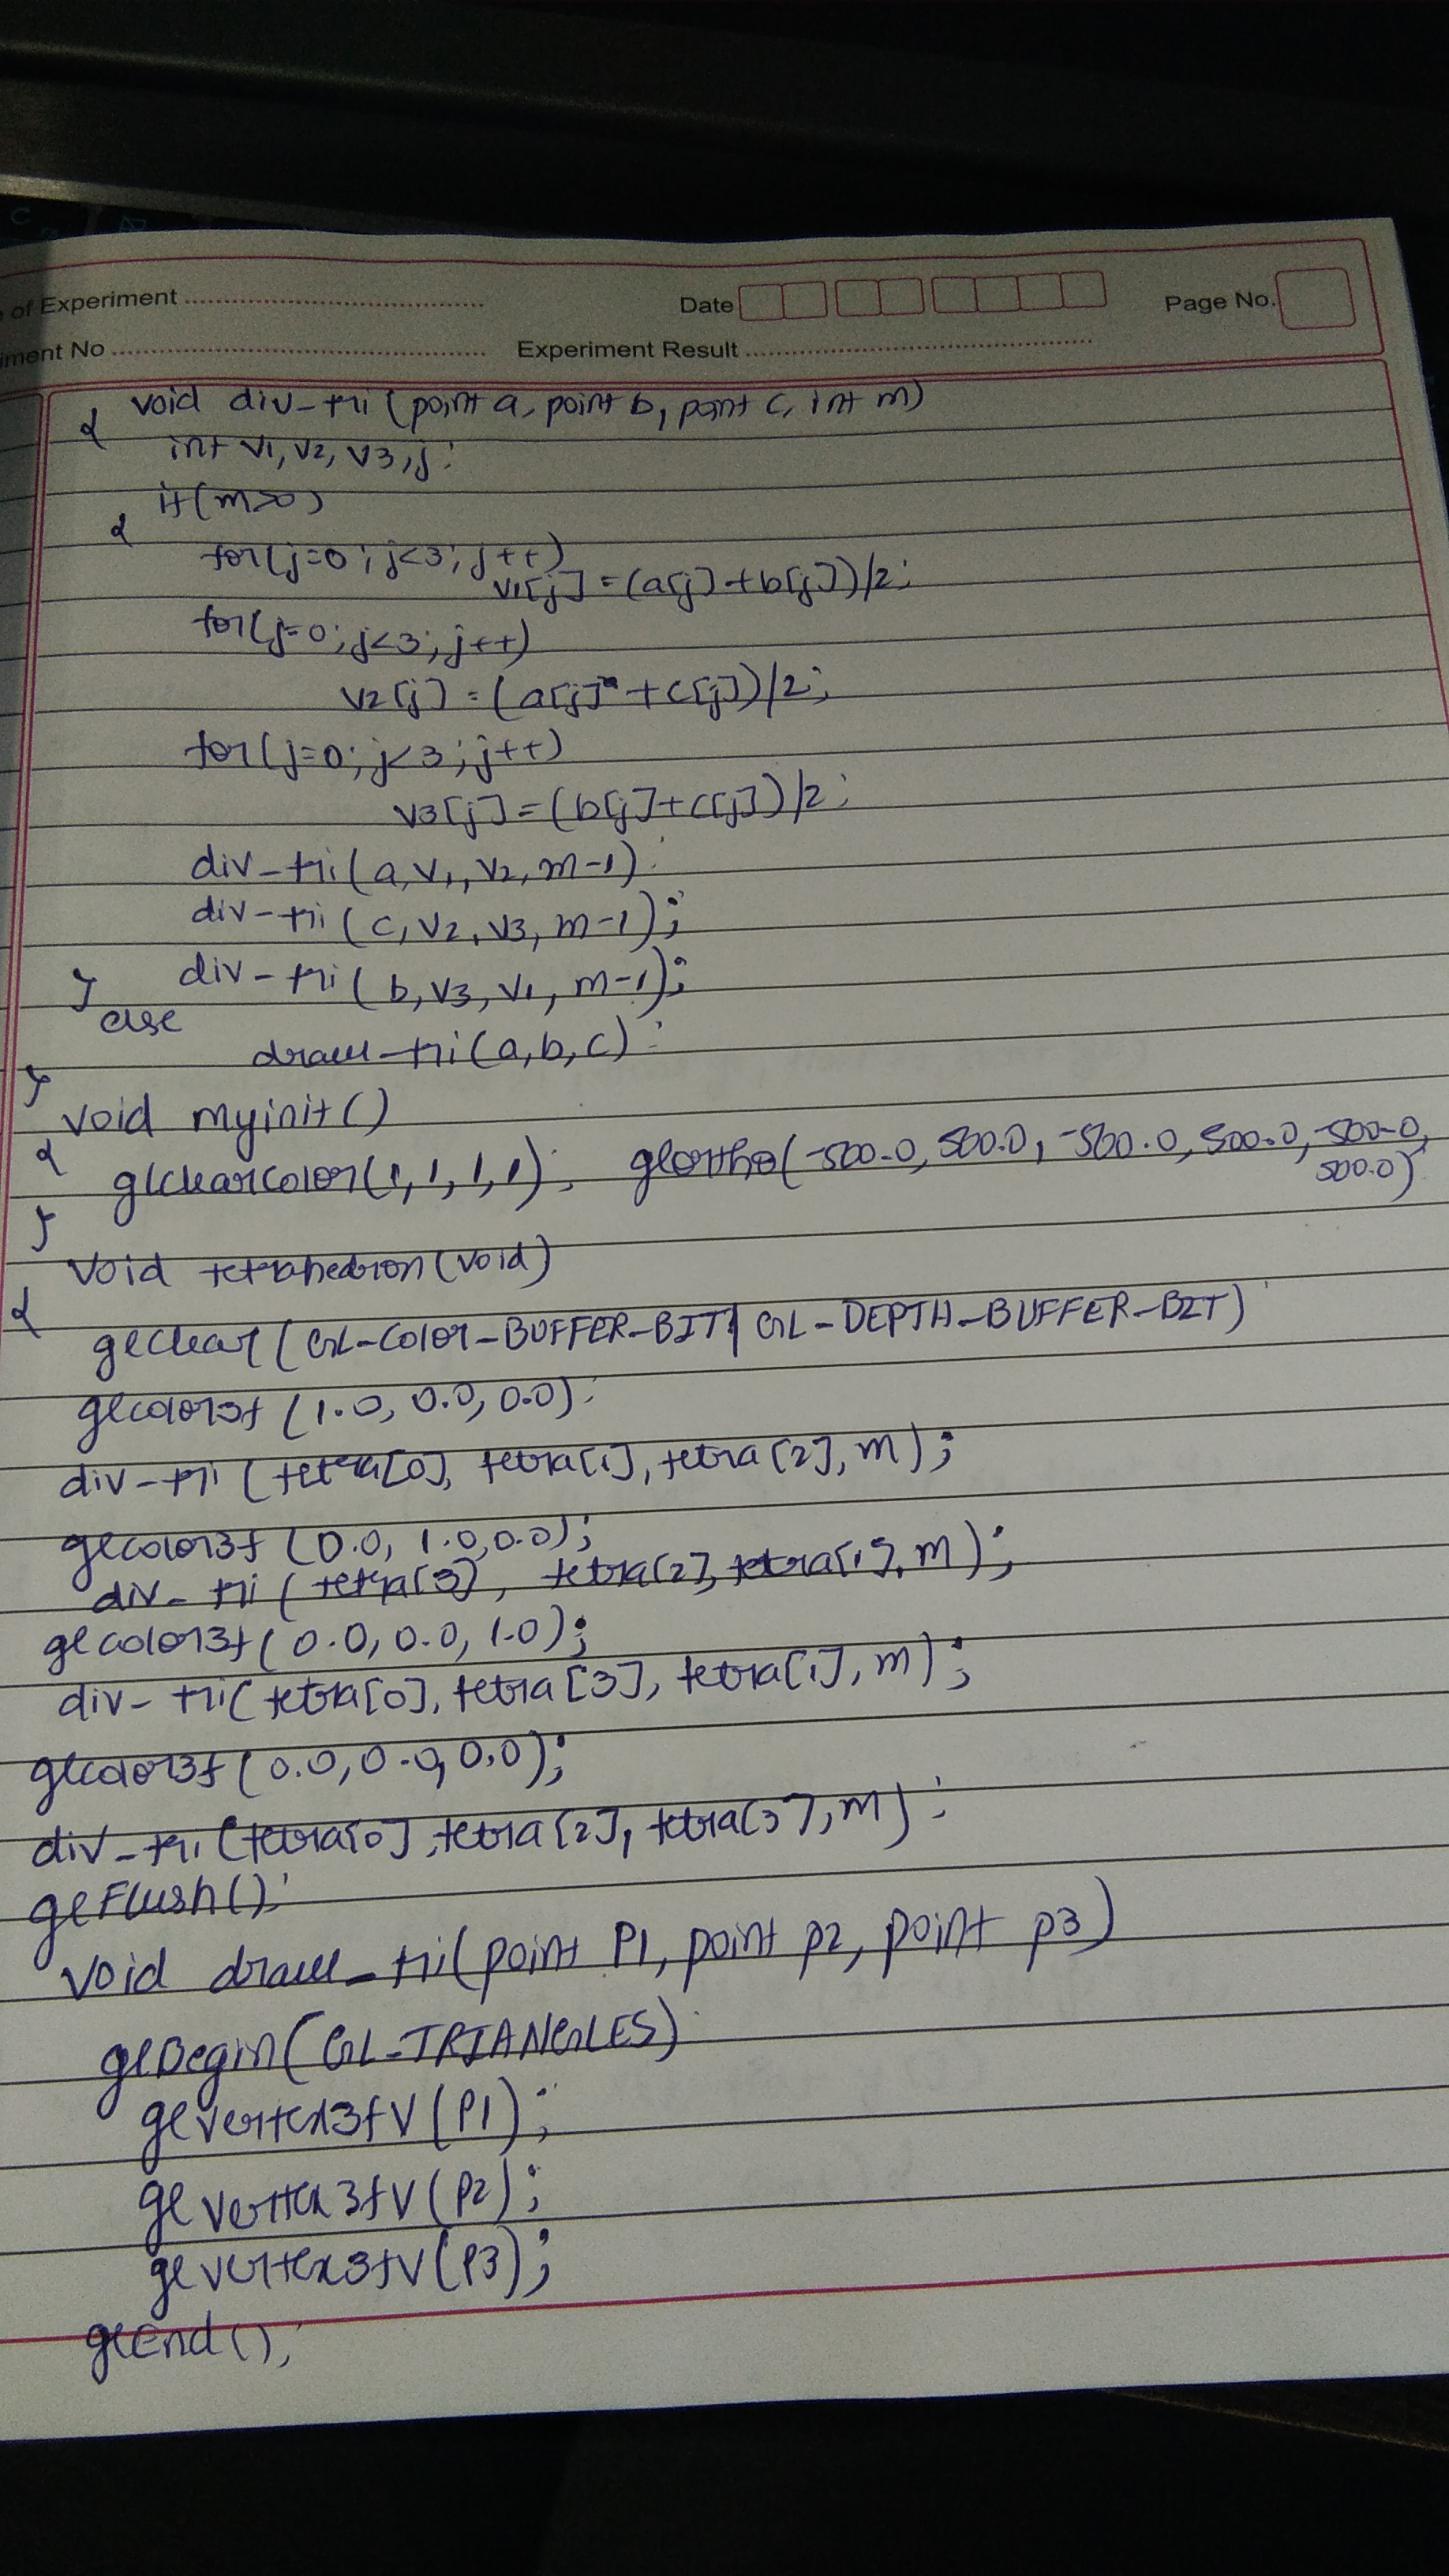 of Experiment
Date
Page No.
iment No
Experiment Result
void div-tri (point a, point b, point c, int m)
{
int v1, v2, v3, j;
if(m>0)
{
for(j=0; j<3; j++)
v1[j] = (a[j]+b[j])/2;
for(j=0; j<3; j++)
v2[j] = (a[j] + c[j])/2;
for(j=0; j<3; j++)
v3[j] = (b[j]+c[j])/2;
div-tri(a, v1, v2, m-1);
div-tri (c, v2, v3, m-1);
div-tri (b, v3, v1, m-1);
}
else
draw-tri(a,b,c);
}
void myinit()
{
glclearcolor(1,1,1,1); glortho(-500.0, 500.0, -500.0, 500.0, -500.0,
500.0)
}
void tetrahedron(void)
{
glclear (GL-Color-BUFFER-BIT| GL-DEPTH-BUFFER-BIT)
glcolor3f (1.0, 0.0, 0.0);
div-tri (tetra[0], tetra[1], tetra[2], m);
glcolor3f (0.0, 1.0, 0.0);
div-tri (tetra[3], tetra[2], tetra[1], m);
glcolor3f (0.0, 0.0, 1.0);
div-tri(tetra[0], tetra[3], tetra[1], m);
glcolor3f (0.0, 0.0, 0.0);
div-tri (tetra[0], tetra[2], tetra[3], m);
glFlush();
void draw-tri(point P1, point p2, point p3)
glBegin(GL-TRIANGLES)
glvertex3fv(P1);
glvertex3fv(P2);
glvertex3fv(P3);
glEnd();